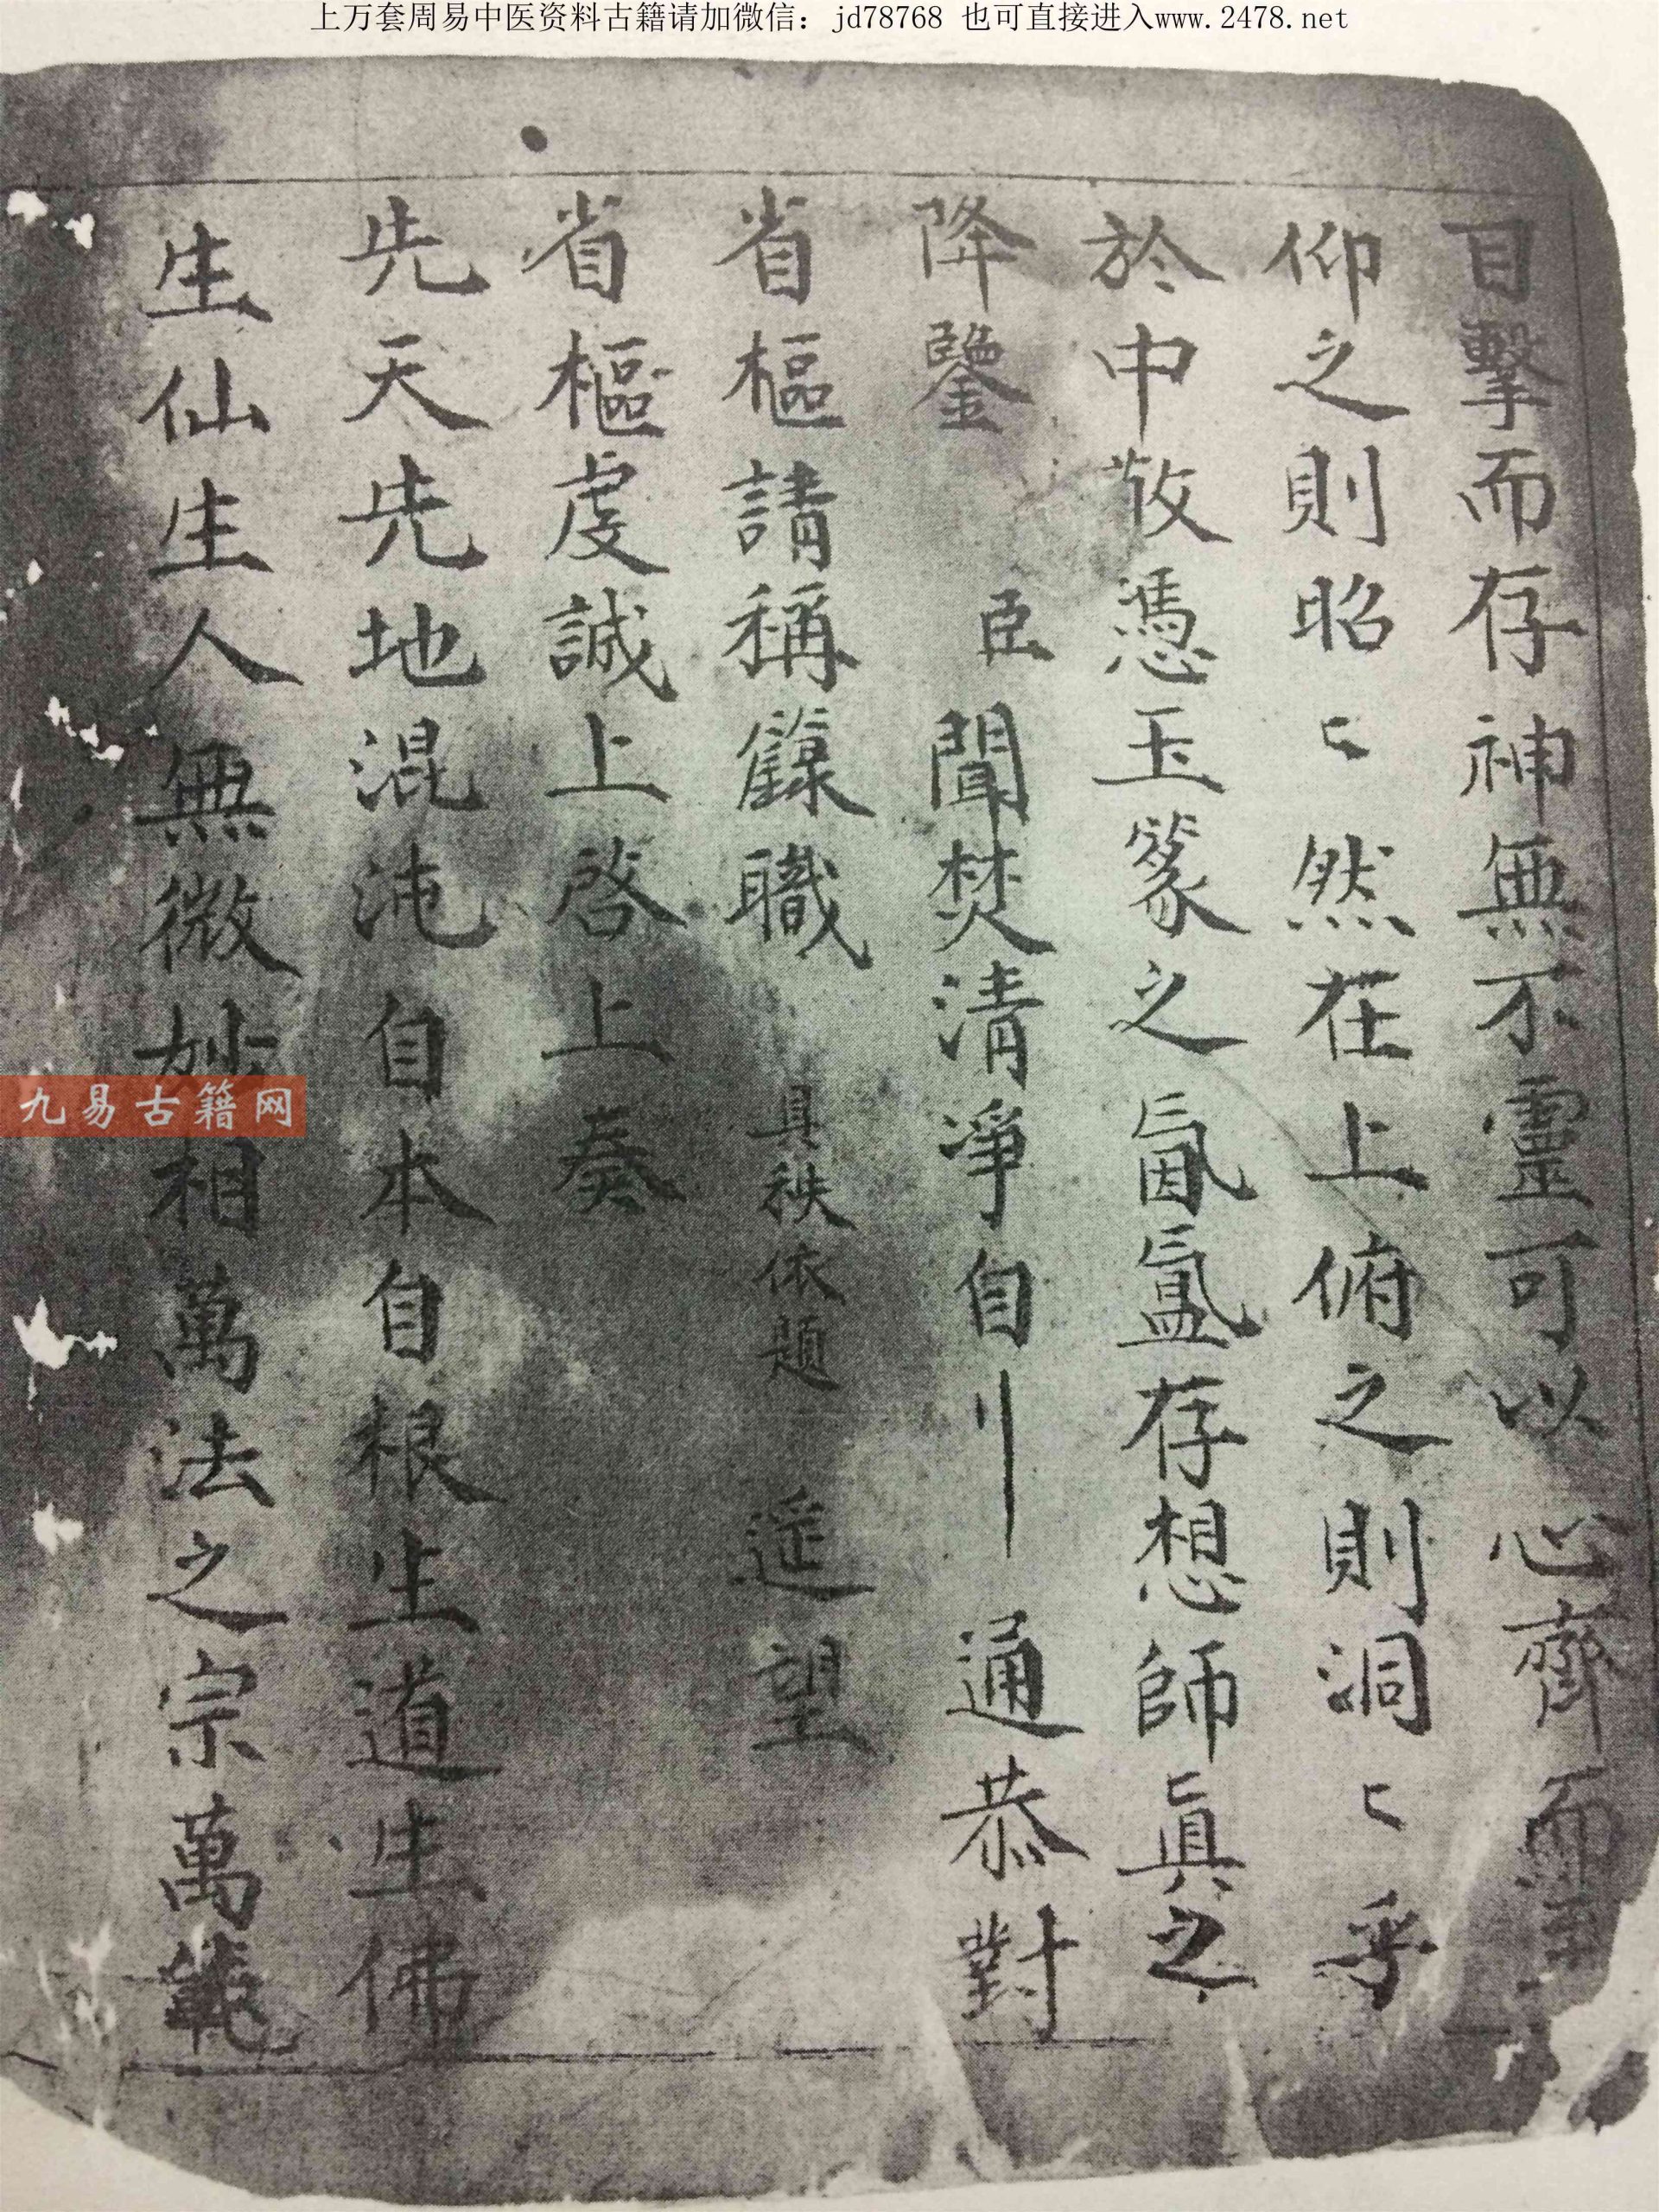 上万套周易中医资料古籍请加微信：jd78768 也可直接进入www.2478.net
目擊而存神無不靈可以心齊而
仰之則昭〻然在上俯之則洞〻乎
於中敬憑玉篆之氤氳存想師眞之
降鑒 臣聞焚清淨自〢通恭對
省樞請稱籙職 具秩依題 遥望
省樞虔誠上啓上奏
先天先地混沌自本自根生道生佛
生仙生人無微妙相萬法之宗萬範
九易古籍网